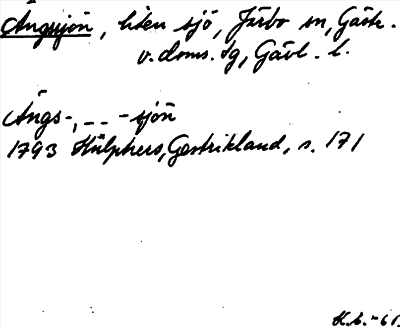 Ängsjön, liten sjö, Järbo sn, Gästr.
v. doms. dg, Gävl. l.
Ängs-, _ _ -sjön
1793 Hülphers, Gestrikland, s. 171
K.L. -61.